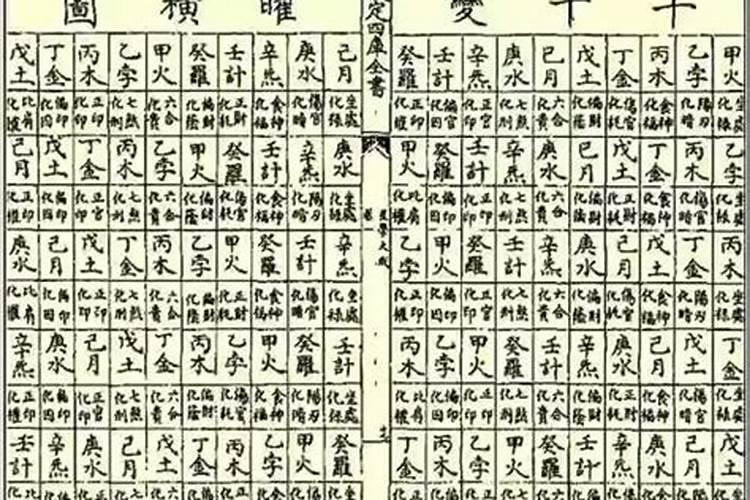 十干變
甲火 乙孛 丙木 丁金 戊土 己月 庚水 辛炁 壬計 癸羅
生處化祿 陽刃化暗 食神化福 傷官化耗 偏財化蔭 六合化貴 七煞化刑 正官化印 偏官化囚
乙孛 丙木 丁金 戊土 己月 庚水 辛炁 壬計 癸羅 甲火
生處化祿 傷官化暗 食神化福 正財化耗 偏財化蔭 六合化貴 七煞化刑 正印化印 偏印化囚 比肩化權
丙木 丁金 戊土 己月 庚水 辛炁 壬計 癸羅 甲火 乙孛
生處化祿 陽刃化暗 食神化福 傷官化耗 偏財化蔭 六合化貴 七煞化刑 正官化印 偏印化囚 正印化權
丁金 戊土 己月 庚水 辛炁 壬計 癸羅 甲火 乙孛 丙木
生處化祿 傷官化暗 食神化福 正財化耗 偏財化蔭 六合化貴 七煞化刑 正印化印 偏印化囚 比肩化權
戊土 己月 庚水 辛炁 壬計 癸羅 甲火 乙孛 丙木 丁金
定四庫全書
星學大成
曜橫圖
己月 庚水 辛炁 壬計 癸羅 甲火 乙孛 丙木 丁金 戊土
生處化祿 傷官化暗 食神化福 正財化耗 偏財化蔭 六合化貴 七煞化刑 正印化印 偏印化囚 比肩化權
庚水 辛炁 壬計 癸羅 甲火 乙孛 丙木 丁金 戊土 己月
生處化祿 陽刃化暗 食神化福 傷官化耗 偏財化蔭 六合化貴 七煞化刑 正官化印 偏印化囚 正印化權
辛炁 壬計 癸羅 甲火 乙孛 丙木 丁金 戊土 己月 庚水
生處化祿 傷官化暗 食神化福 正財化耗 偏財化蔭 六合化貴 七煞化刑 正印化印 偏印化囚 比肩化權
壬計 癸羅 甲火 乙孛 丙木 丁金 戊土 己月 庚水 辛炁
生處化祿 陽刃化暗 食神化福 傷官化耗 偏財化蔭 六合化貴 七煞化刑 正官化印 偏印化囚 正印化權
癸羅 甲火 乙孛 丙木 丁金 戊土 己月 庚水 辛炁 壬計